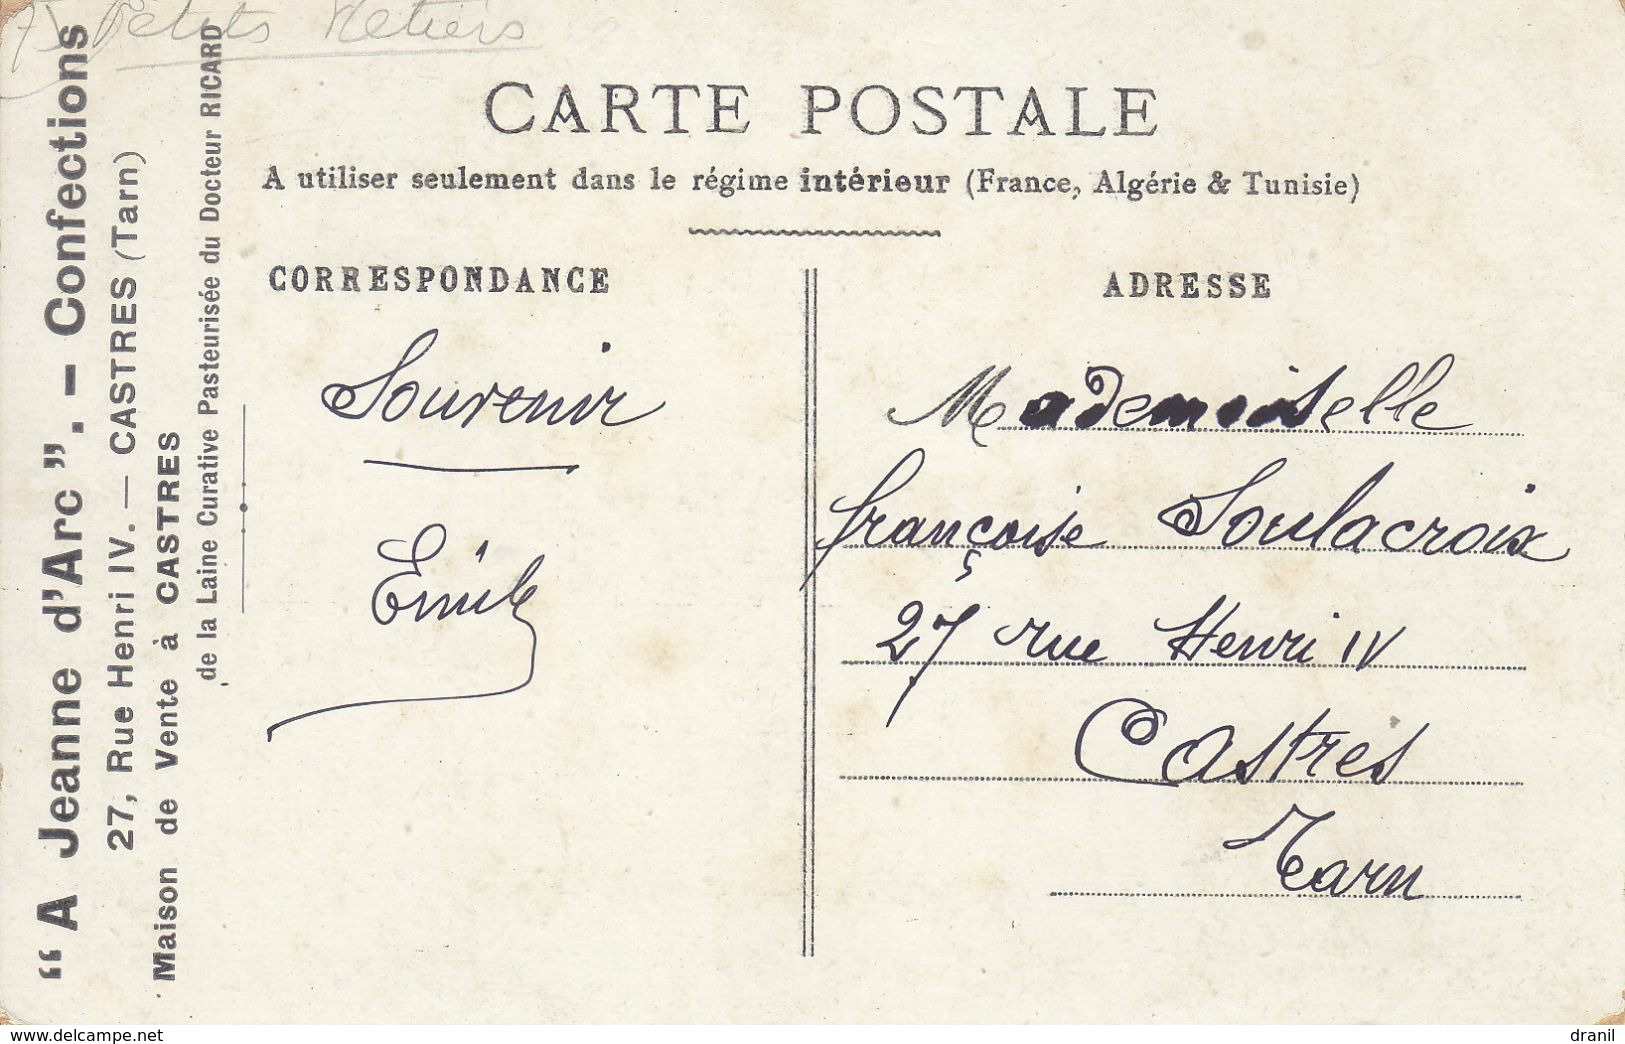 75 Petits Metiers
CARTE POSTALE
A utiliser seulement dans le régime intérieur (France, Algérie & Tunisie)
CORRESPONDANCE
Souvenir
Emile
ADRESSE
Mademoiselle
françoise Soulacroix
27 rue Henri IV
Castres
Tarn
“A Jeanne d'Arc”. – Confections
27, Rue Henri IV. — CASTRES (Tarn)
Maison de Vente à CASTRES
de la Laine Curative Pasteurisée du Docteur RICARD
www.delcampe.net
dranil